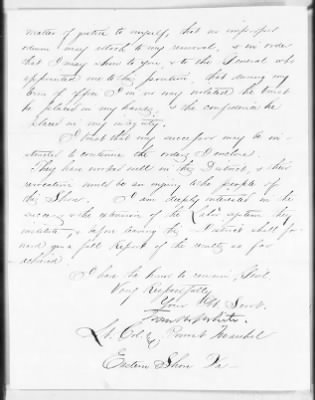 matter of justice to myself, that no improper
odium may attach to my removal, & in order
that I may show to you, & to the General who
appointed me to the position, that during my
term of office I in no way violated the trust
he placed in my hands, & the confidence he
placed in my integrity.
I trust that my successor may be in-
structed to continue the orders I enclose.
They have worked well in this District, & their
revocation would be an injury to the people of
this Shore. I am deeply interested in the
success & the extension of the Labor system they
institute, & before leaving the District shall for-
ward you a full Report of the results so far
attained.
I have the honor to remain,
Very Respectfully
Your Obt. Servt.
Lt. Col. & Provost Marshal
Eastern Shore Va